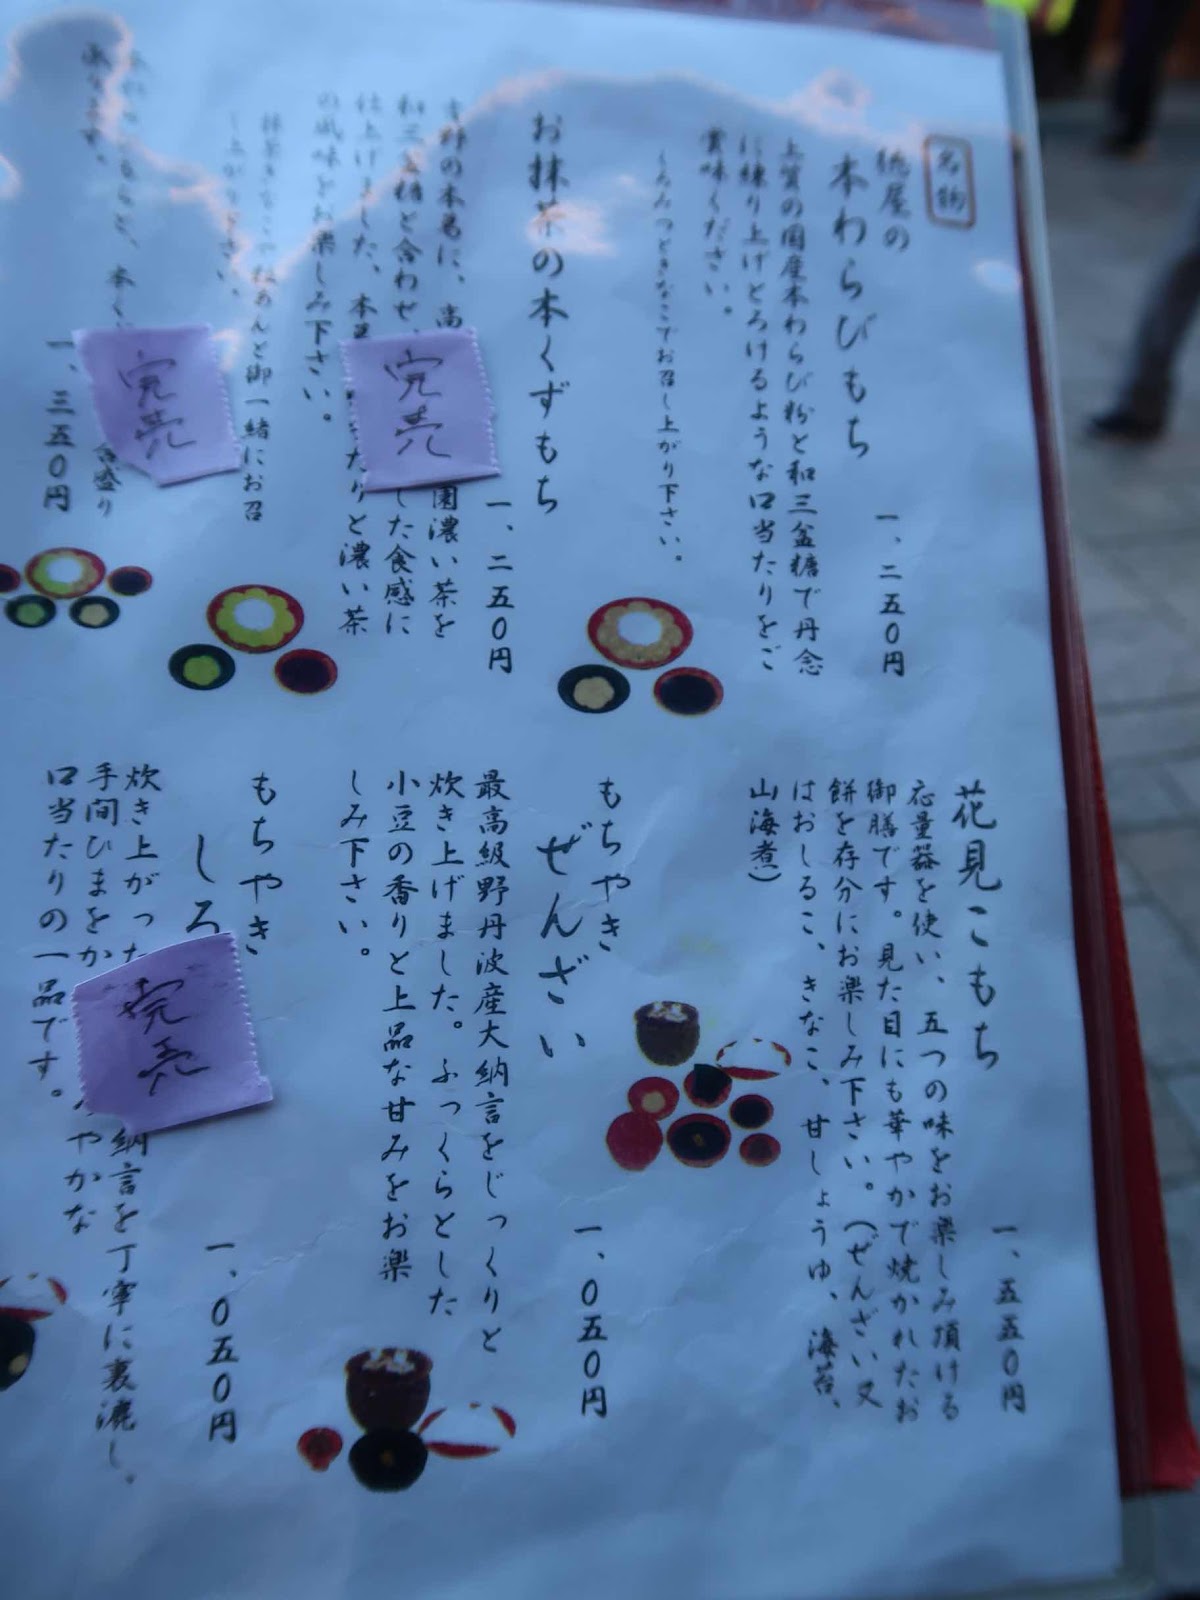 名物
屋の
本わらびもち
一、二五〇円
上質の国産本わらび粉と和三盆糖で丹念
に練り上げとろけるような口当たりをご
賞味ください。
くろみつときなこでお召し上がり下さい。
お抹茶の本くずもち
一、二五〇円
吉野の本葛に、高
園濃い茶を
和三盆糖と合わせ、
した食感に
仕上げました。本葛
たりと濃い茶
の風味をお楽しみ下さい。
抹茶きなこや粒あんと御一緒にお召
し上がり下さい。
完売
完売
盛り
一、三五〇円
花見こもち
一、五五〇円
応量器を使い、五つの味をお楽しみ頂ける
御膳です。見た目にも華やかで焼かれたお
餅を存分にお楽しみ下さい。（ぜんざい又
はおしるこ、きなこ、甘しょうゆ、海苔、
山海煮）
もちやき
ぜんざい
一、〇五〇円
最高級野丹波産大納言をじっくりと
炊き上げました。ふっくらとした
小豆の香りと上品な甘みをお楽
しみ下さい。
もちやき
しる
一、〇五〇円
完売
炊き上がった
納言を丁寧に裏漉し、
手間ひまをか
やかな
口当たりの一品です。